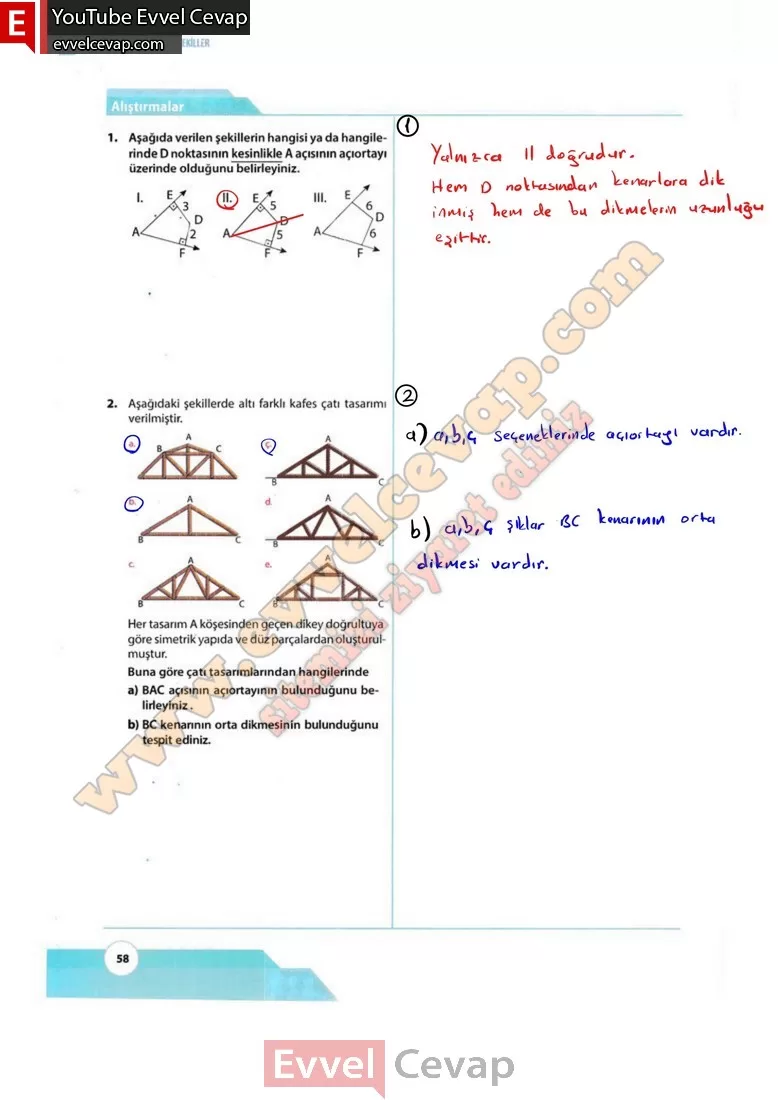 E YouTube Evvel Cevap
evvelcevap.com EKİLLER
Alıştırmalar
1. Aşağıda verilen şekillerin hangisi ya da hangile-
rinde D noktasının kesinlikle A açısının açıortayı
üzerinde olduğunu belirleyiniz.
I. E 3 D A 2 F
II. E 5 D A 5 F
III. E 6 D A 6 F
2. Aşağıdaki şekillerde altı farklı kafes çatı tasarımı
verilmiştir.
a. A B C
ç. A B C
b. A B C
d. A B C
c. A B C
e. A B C
Her tasarım A köşesinden geçen dikey doğrultuya
göre simetrik yapıda ve düz parçalardan oluşturul-
muştur.
Buna göre çatı tasarımlarından hangilerinde
a) BAC açısının açıortayının bulunduğunu be-
lirleyiniz.
b) BC kenarının orta dikmesinin bulunduğunu
tespit ediniz.
1
Yalnızca II doğrudur.
Hem D noktasından kenarlara dik
inmiş hem de bu dikmelerin uzunluğu
eşittir.
2
a) a,b,ç seçeneklerinde açıortayı vardır.
b) a,b,ç şıklar BC kenarının orta
dikmesi vardır.
www.evvelcevap.com
sitemizi ziyaret ediniz
58
Evvel Cevap